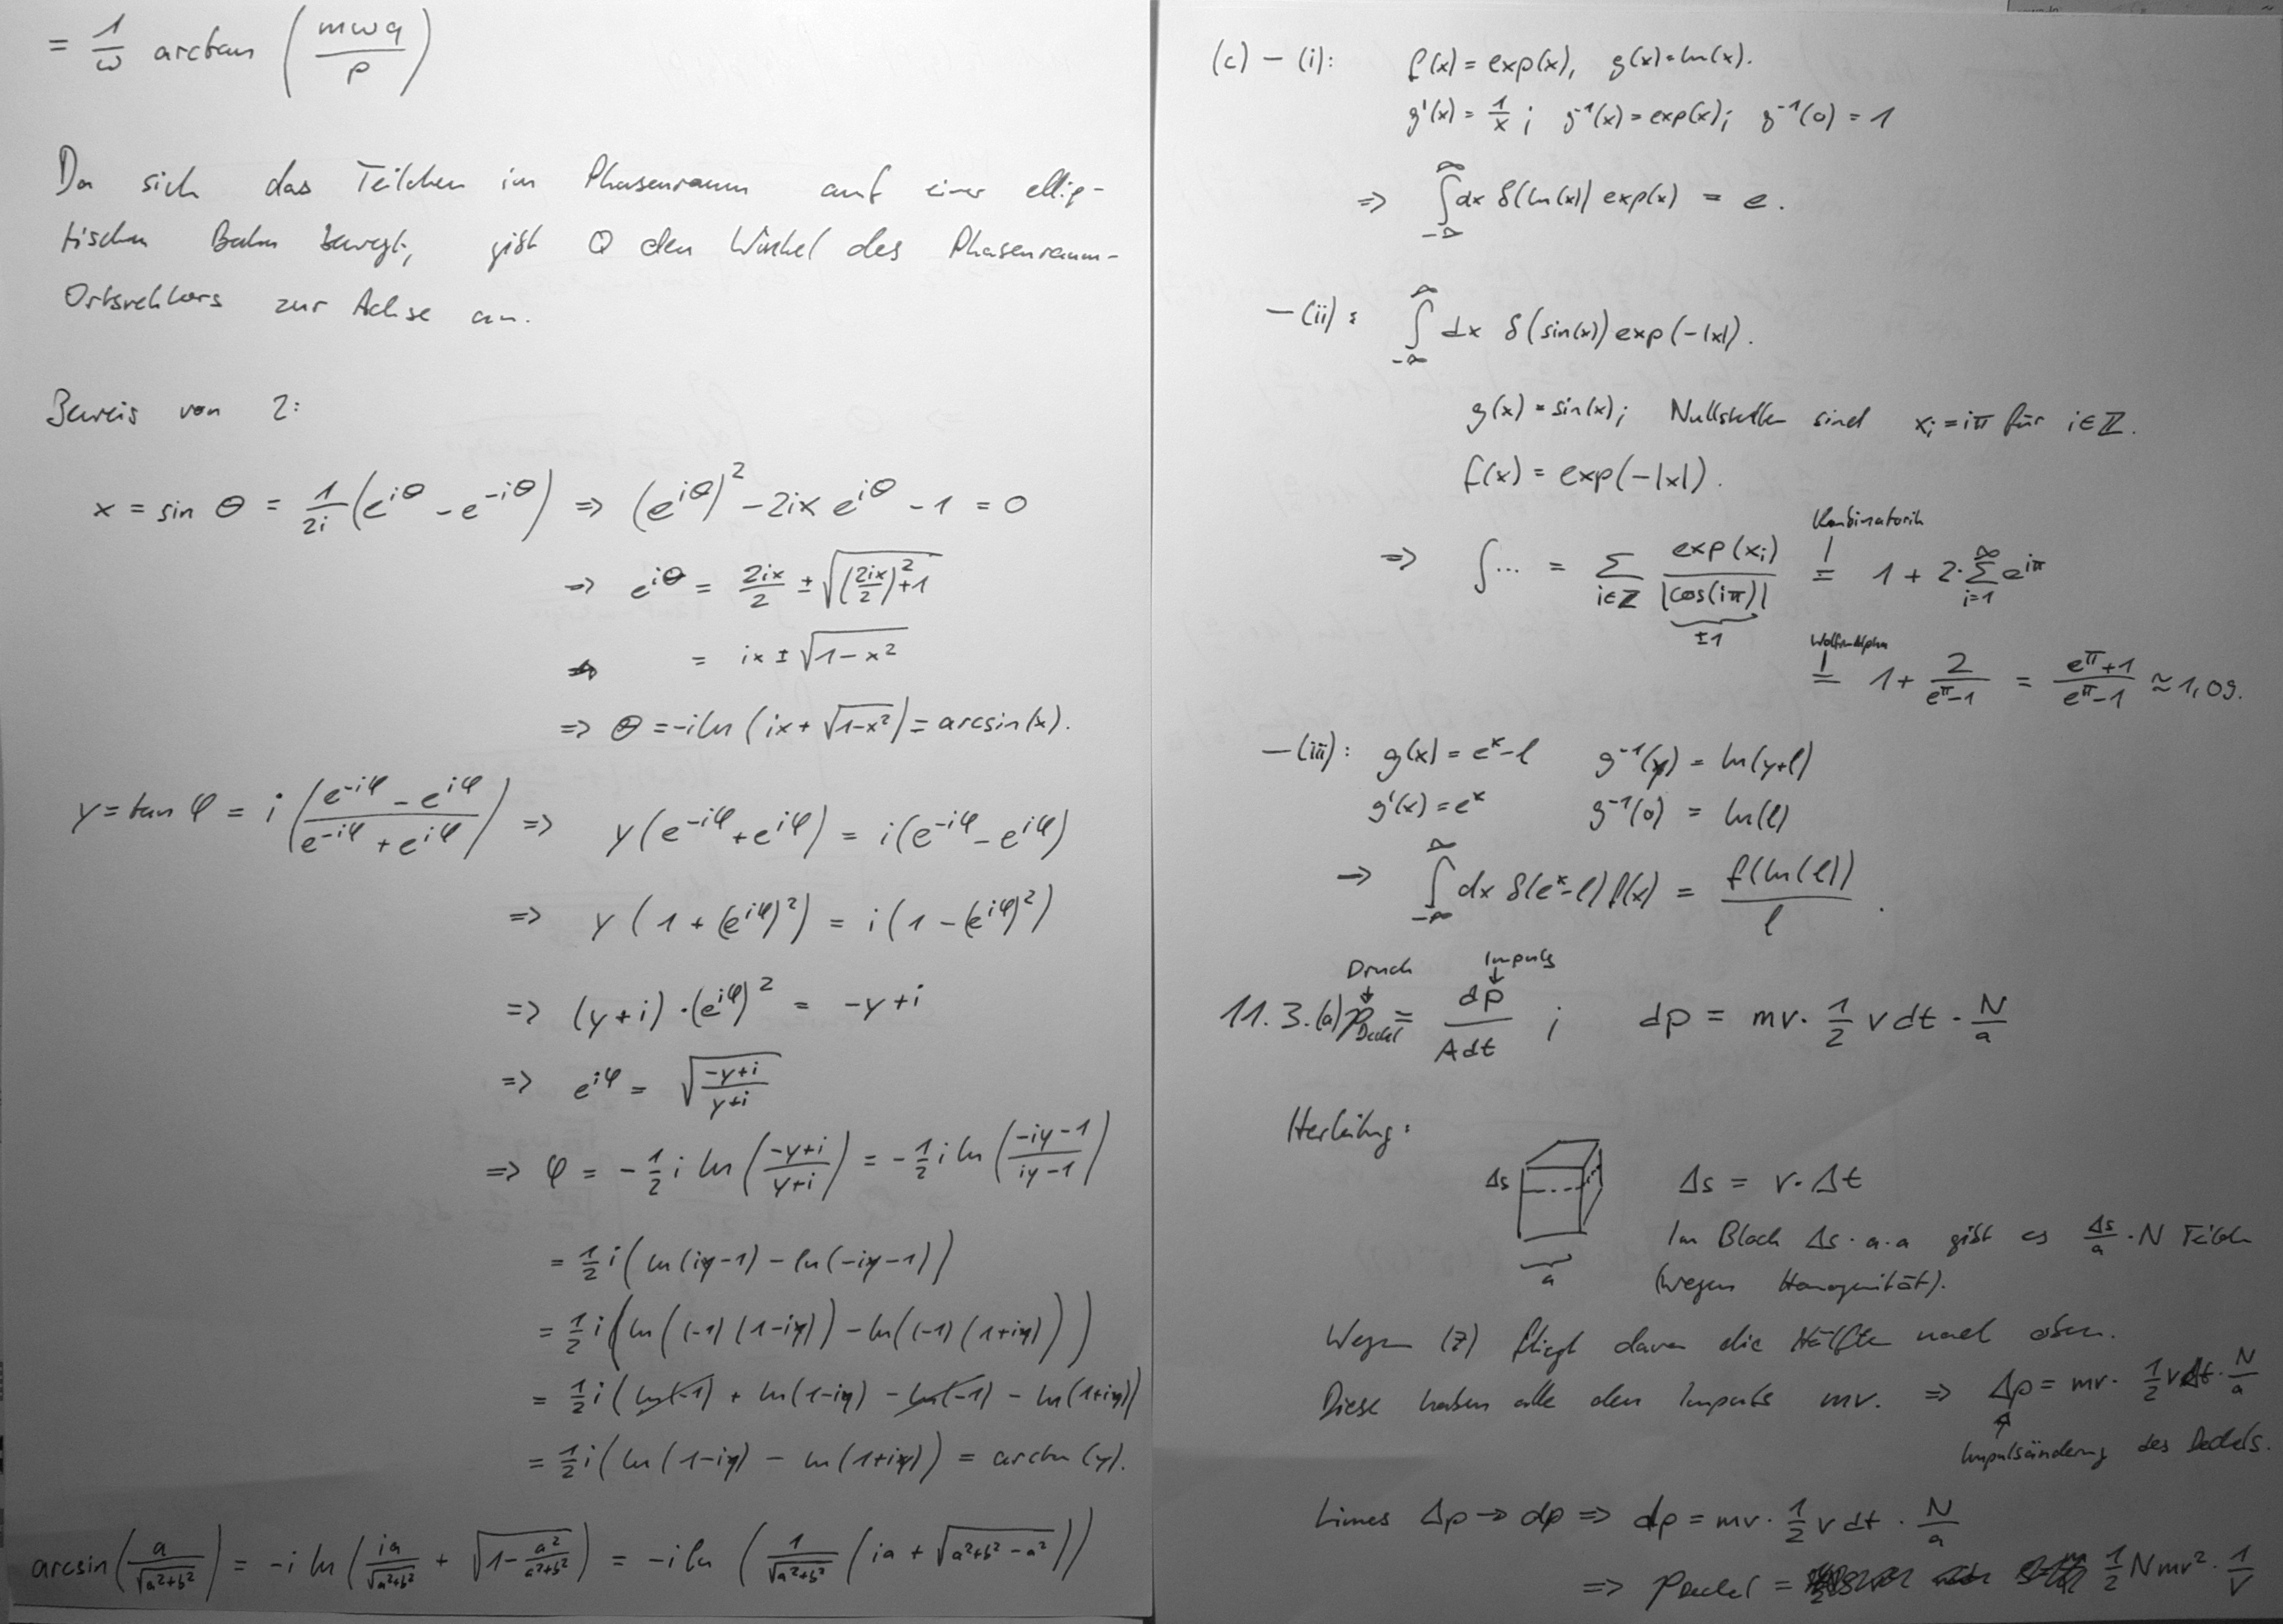 = 1/ω arctan (mωq/p)
Da sich das Teilchen im Phasenraum auf einer ellip-
tischen Bahn bewegt, gibt Q den Winkel des Phasenraum-
Ortsvektors zur Achse an.
Beweis von 2:
x = sin θ = 1/2i (e^{iθ} - e^{-iθ}) => (e^{iθ})² - 2ix e^{iθ} - 1 = 0
=> e^{iθ} = 2ix/2 ± √((2ix/2)² + 1)
= ix ± √(1-x²)
=> θ = -i ln (ix + √(1-x²)) = arcsin(x).
y = tan φ = i ((e^{-iφ} - e^{iφ})/(e^{-iφ} + e^{iφ})) => y(e^{-iφ} + e^{iφ}) = i(e^{-iφ} - e^{iφ})
=> y (1 + (e^{iφ})²) = i (1 - (e^{iφ})²)
=> (y+i) · (e^{iφ})² = -y+i
=> e^{iφ} = √((-y+i)/(y+i))
=> φ = -1/2 i ln ((-y+i)/(y+i)) = -1/2 i ln ((-iy-1)/(iy-1))
= 1/2 i (ln(iy-1) - ln(-iy-1))
= 1/2 i (ln((-1)(1-iy)) - ln((-1)(1+iy)))
= 1/2 i (ln(-1) + ln(1-iy) - ln(-1) - ln(1+iy))
= 1/2 i (ln(1-iy) - ln(1+iy)) = arctan(y).
arcsin(a/√(a²+b²)) = -i ln (ia/√(a²+b²) + √(1 - a²/(a²+b²))) = -i ln (1/√(a²+b²) (ia + √(a²+b²-a²)))
(c) - (i): f(x) = exp(x), g(x) = ln(x).
g'(x) = 1/x ; g⁻¹(x) = exp(x); g⁻¹(0) = 1
=> ∫_{-∞}^{∞} dx δ(ln(x)) exp(x) = e.
- (ii): ∫_{-∞}^{∞} dx δ(sin(x)) exp(-|x|).
g(x) = sin(x); Nullstellen sind x_i = iπ für i∈ℤ.
f(x) = exp(-|x|).
Kombinatorik
=> ∫... = Σ_{i∈ℤ} exp(x_i)/|cos(iπ)| = 1 + 2·Σ_{i=1}^{∞} e^{iπ}
±1
WolframAlpha
= 1 + 2/(e^π-1) = (e^π+1)/(e^π-1) ≈ 1,09.
- (iii): g(x) = e^x - l g⁻¹(y) = ln(y+l)
g'(x) = e^x g⁻¹(0) = ln(l)
→ ∫_{-∞}^{∞} dx δ(e^x - l) f(x) = f(ln(l))/l .
Druck Impuls
11.3.(a) p_Deckel = dp/(A dt) ; dp = mv · 1/2 v dt · N/a
Herleitung:
Δs Δs = v·Δt
Im Block Δs·a·a gibt es Δs/a · N Teilch
a (wegen Homogenität).
Wegen (Z) fliegt davon die Hälfte nach oben.
Diese haben alle den Impuls mv. => Δp = mv · 1/2 vΔt · N/a
Impulsänderung des Deckels.
Limes Δp → dp => dp = mv · 1/2 v dt · N/a
=> p_Deckel = 1/2 N m v² · 1/V